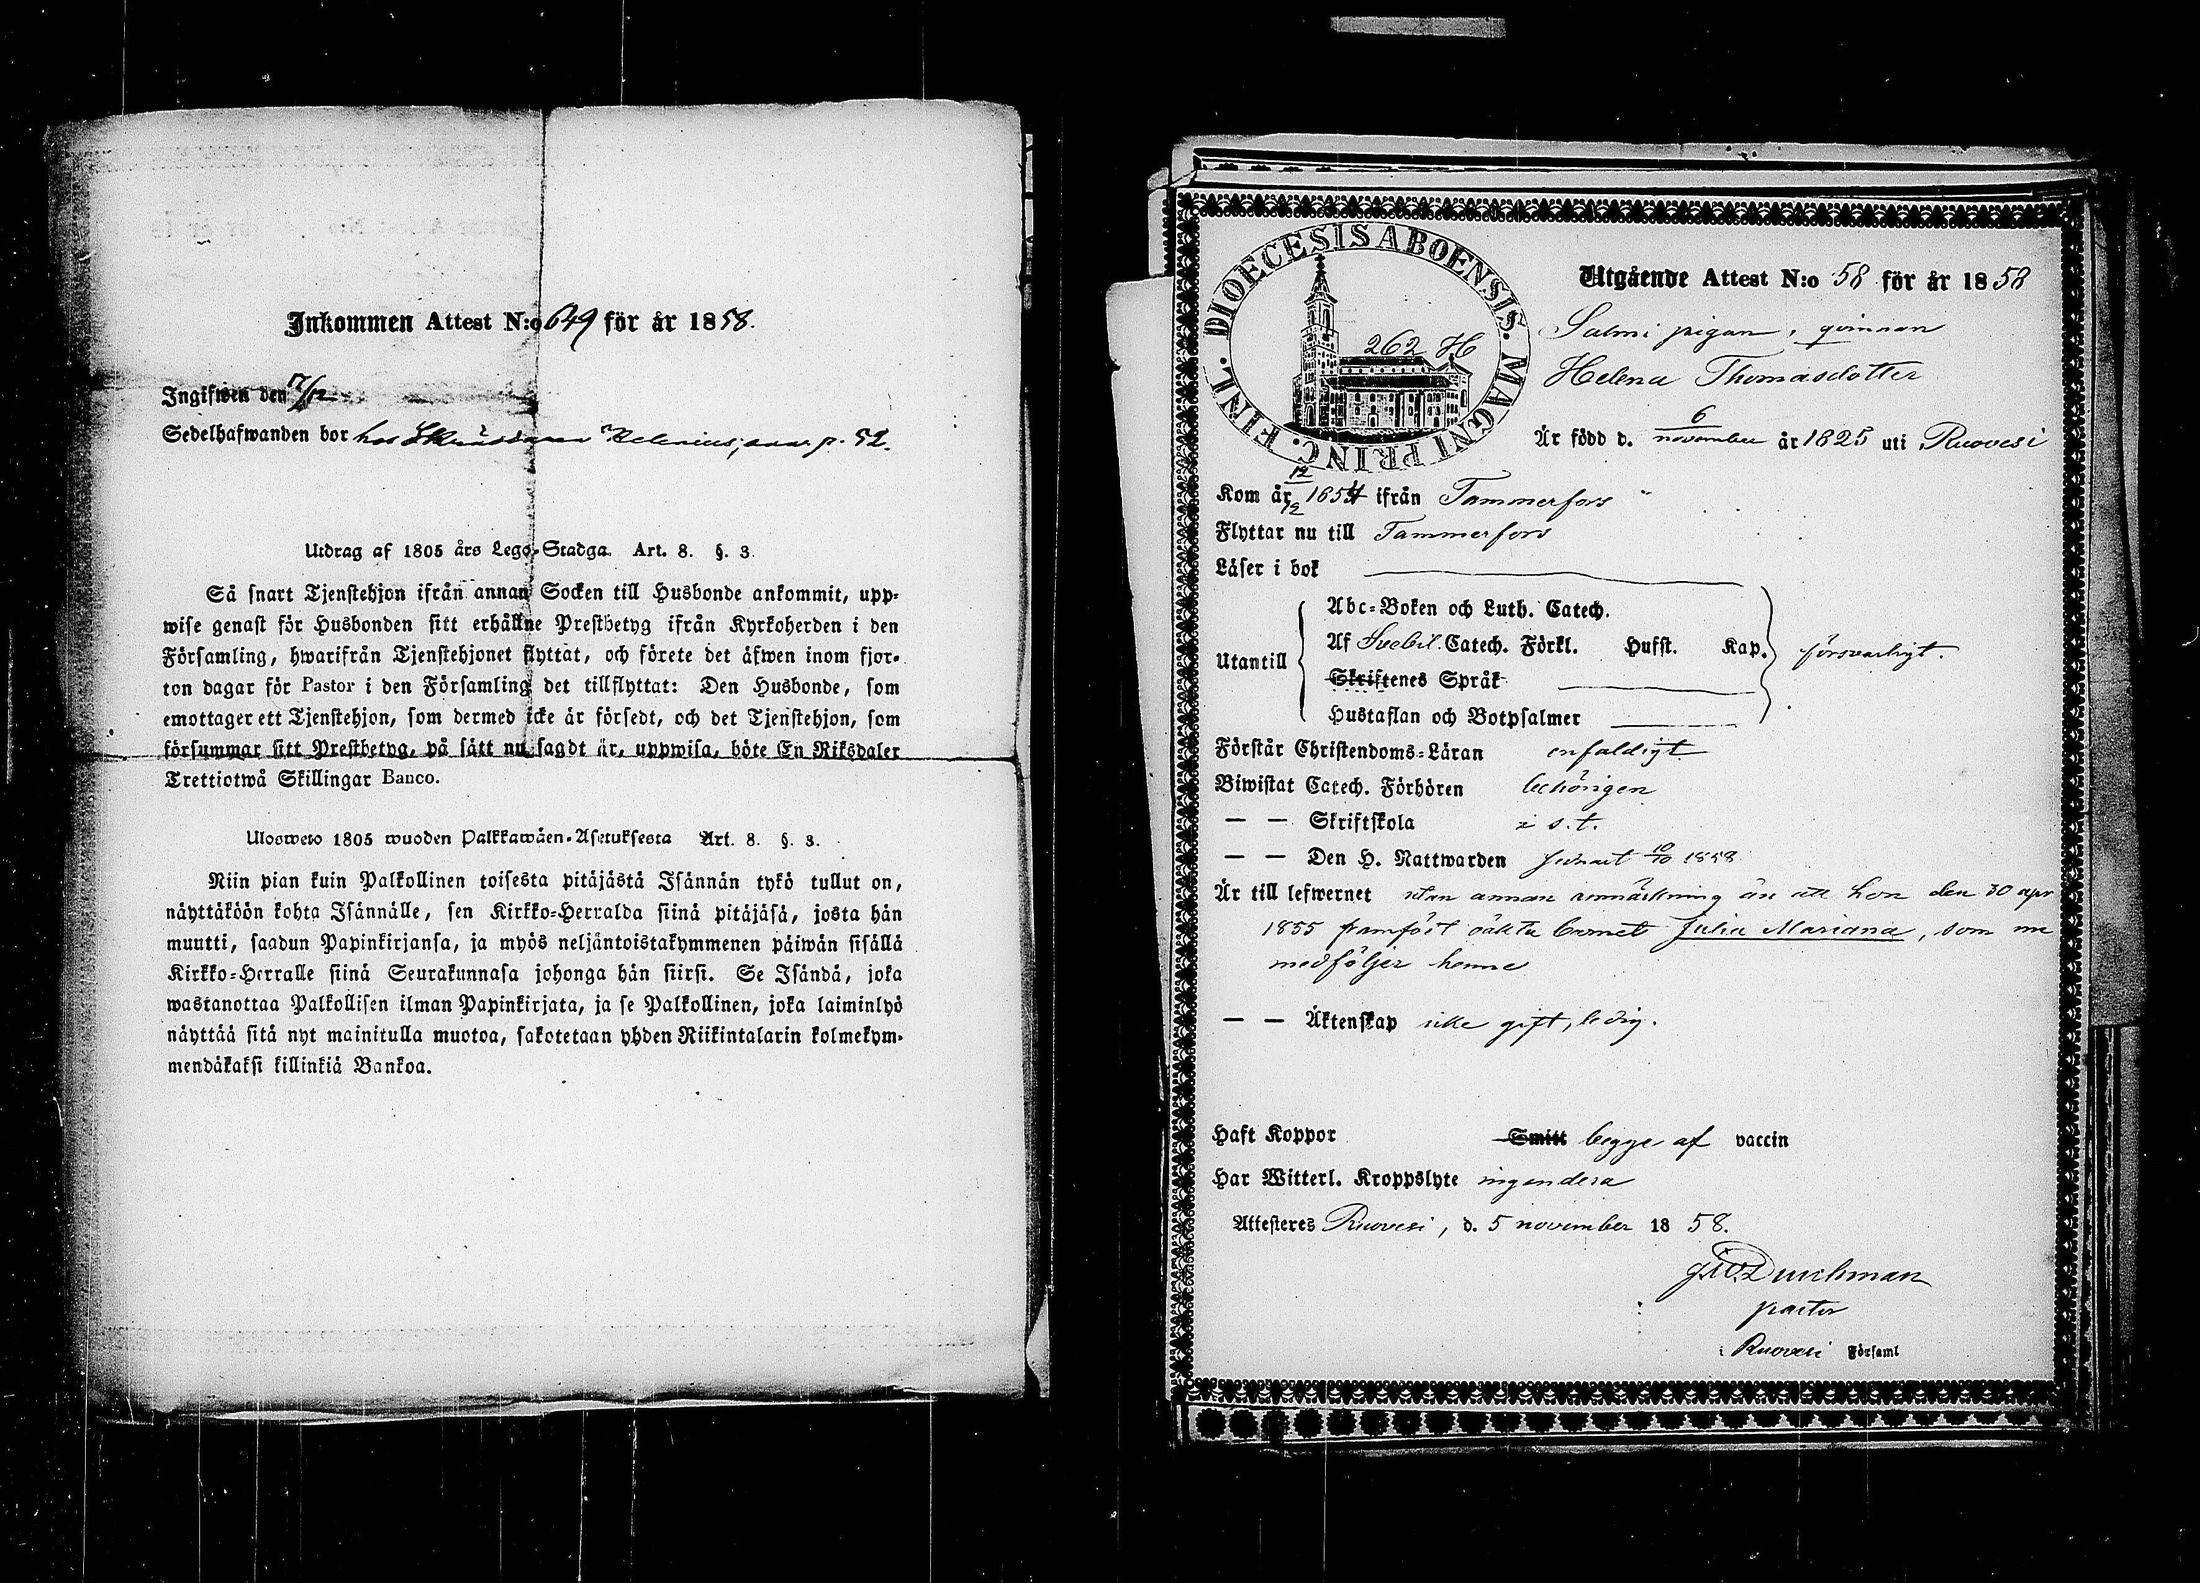 Inkommen Attest N:o 649 för år 1858.
Ingifwen den 17/12
Sedelhafwanden bor hos Helenius, p. 52.
Utdrag af 1805 års Lego-Stadga. Art. 8. §. 3.
Så snart Tjenstehjon ifrån annan Socken till Husbonde ankommit, upp-
wise genast för Husbonden sitt erhållne Prestbetyg ifrån Kyrkoherden i den
Församling, hwarifrån Tjenstehjonet flyttat, och förete det äfwen inom fjor-
ton dagar för Pastor i den Församling det tillflyttat: Den Husbonde, som
emottager ett Tjenstehjon, som dermed icke är försedt, och det Tjenstehjon, som
försummar sitt Prestbetyg, på sätt nu sagdt är, uppwisa, böte En Riksdaler
Trettiotwå Skillingar Banco.
Ulosweto 1805 wuoden Palkkawäen-Asetuksesta Art. 8. §. 3.
Niin pian kuin Palkollinen toisesta pitäjästä Isännän tykö tullut on,
näyttäköön kohta Isännälle, sen Kirkko-Herralda siinä pitäjäsä, josta hän
muutti, saadun Papinkirjansa, ja myös neljäntoistakymmenen päiwän sisällä
Kirkko-Herralle siinä Seurakunnasa johonga hän siirsi. Se Isändä, joka
wastanottaa Palkollisen ilman Papinkirjata, ja se Palkollinen, joka laiminlyö
näyttää sitä nyt mainitulla muotoa, sakotetaan yhden Riikintalarin kolmekym-
mendäkaksi killinkiä Bankoa.
DIOECESIS ABOENSIS. MAGNI PRINC. FINL.
262 H
Utgående Attest N:o 58 för år 1858
Salmi pigan, qvinnan
Helena Thomasdotter
Är född d. 6 november år 1825 uti Ruovesi
Kom år 12/12 1854 ifrån Tammerfors
Flyttar nu till Tammerfors
Läser i bok
Utantill
Abc-Boken och Luth. Catech.
Af Svebil. Catech. Förkl. Hufst. Kap. försvarligt.
Skriftenes Språk
Hustaflan och Botpsalmer
Förstår Christendoms-Läran enfaldigt
Biwistat Catech. Förhören behörigen
— — Skriftskola i s.t.
— — Den H. Nattwarden senast 10/10 1858
Är till lefwernet utan annan anmärkning än att hon den 30 apr
1855 framfödt oäkta barnet Julia Mariana, som nu
medföljer henne
— — Äktenskap icke gift, ledig.
Haft Koppor Smitt begge af vaccin
Har Witterl. Kroppslyte ingendera
Attesteres Ruovesi, d. 5 november 1858.
Durchman
pastor
i Ruovesi Församl